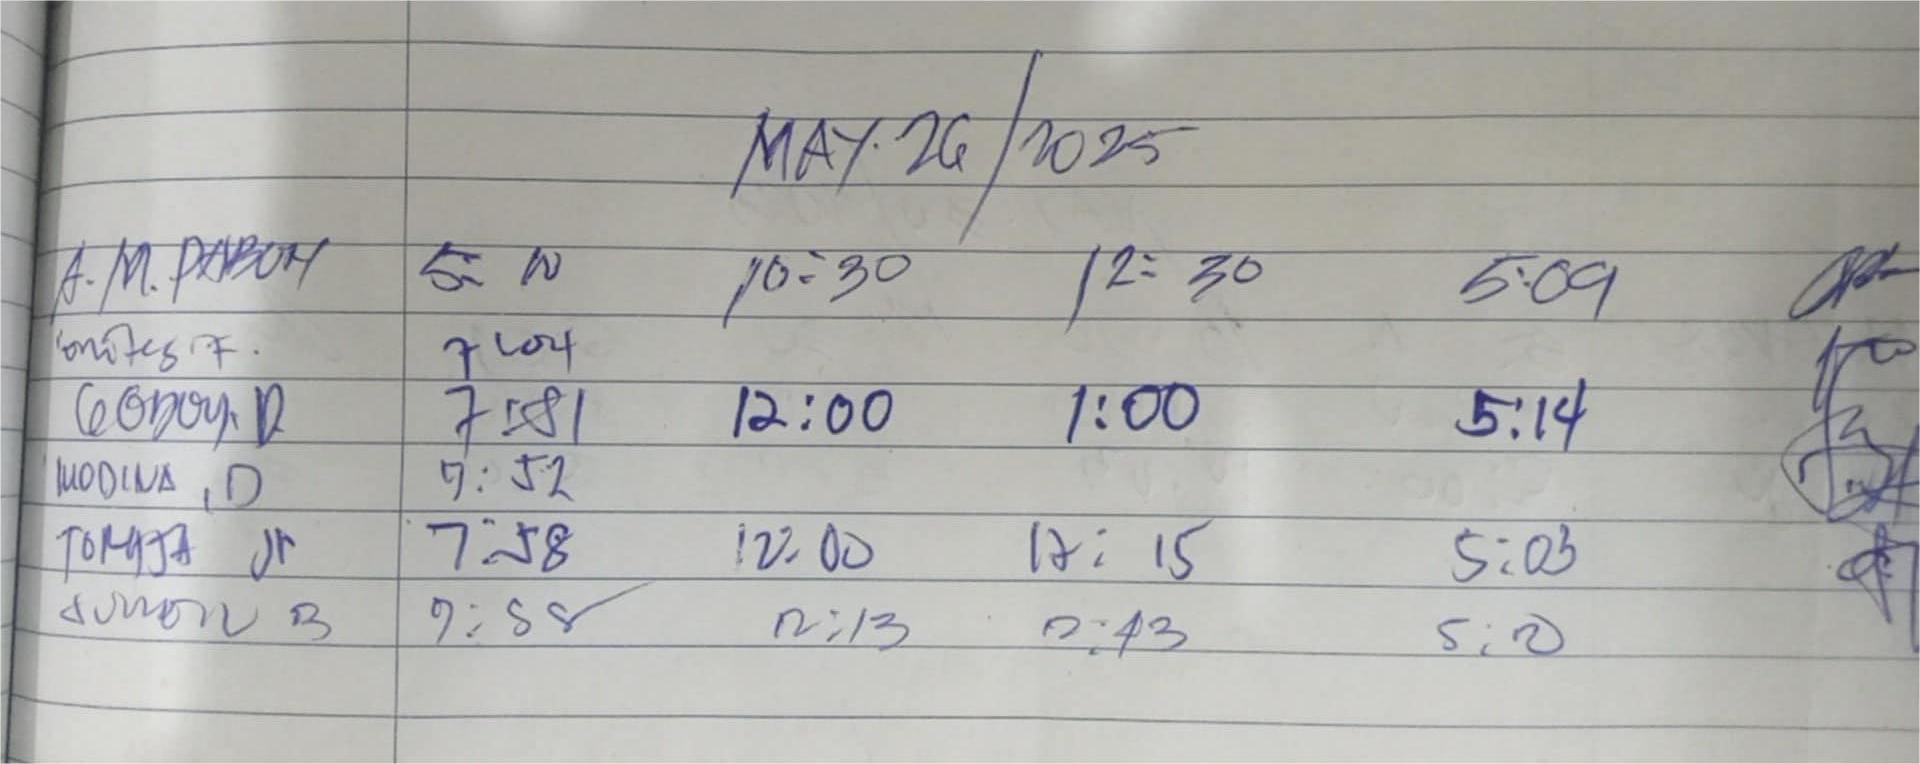 MAY.26/2025
A.M. PABON 5: 10 10:30 12:30 5:09
7:04
GODOY, D 7:51 12:00 1:00 5:14
MODINA, D 7:52
TOMAJA Jr 7:58 12:00 12:15 5:03
B 7:58 12:13 12:43 5:20